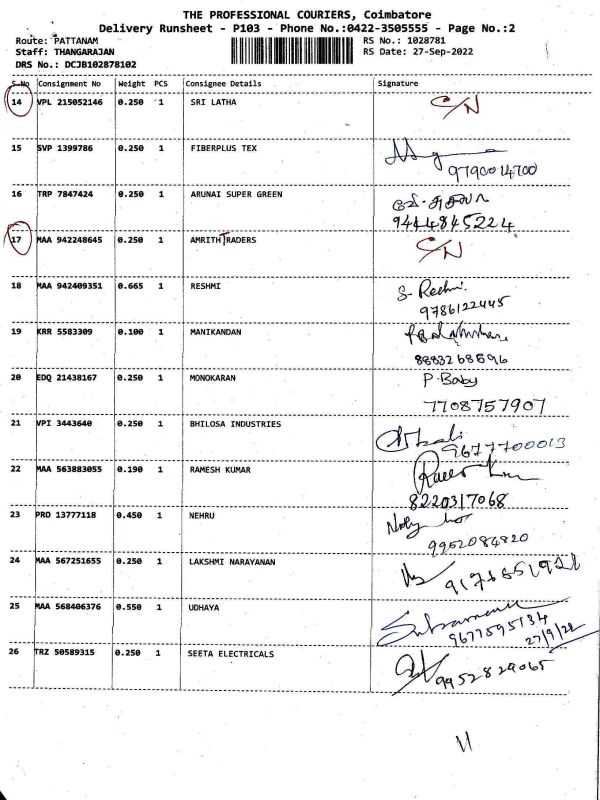 THE PROFESSIONAL COURIERS, Coimbatore
Delivery Runsheet - P103 - Phone No.:0422-3505555 - Page No.:2
Route: PATTANAM RS No.: 1028781
Staff: THANGARAJAN RS Date: 27-Sep-2022
DRS No.: DCJB102878102
S.No Consignment No Weight PCS Consignee Details Signature
14 VPL 215052146 0.250 1 SRI LATHA C/N
15 SVP 1399786 0.250 1 FIBERPLUS TEX
9790014700
16 TRP 7847424 0.250 1 ARUNAI SUPER GREEN
9444845224
17 MAA 942248645 0.250 1 AMRITH TRADERS C/N
18 MAA 942409351 0.665 1 RESHMI S. Reshmi
9786122445
19 KRR 5583309 0.100 1 MANIKANDAN
8883268596
20 EDQ 21438167 0.250 1 MONOKARAN P. Baby
7708757907
21 VPI 3443640 0.250 1 BHILOSA INDUSTRIES
9677700013
22 MAA 563883055 0.190 1 RAMESH KUMAR
8220317068
23 PRO 13777118 0.450 1 NEHRU
9952084820
24 MAA 567251655 0.250 1 LAKSHMI NARAYANAN
25 MAA 568406376 0.550 1 UDHAYA
9677595134
27/9/22
26 TRZ 50589315 0.250 1 SEETA ELECTRICALS
9952829065
11